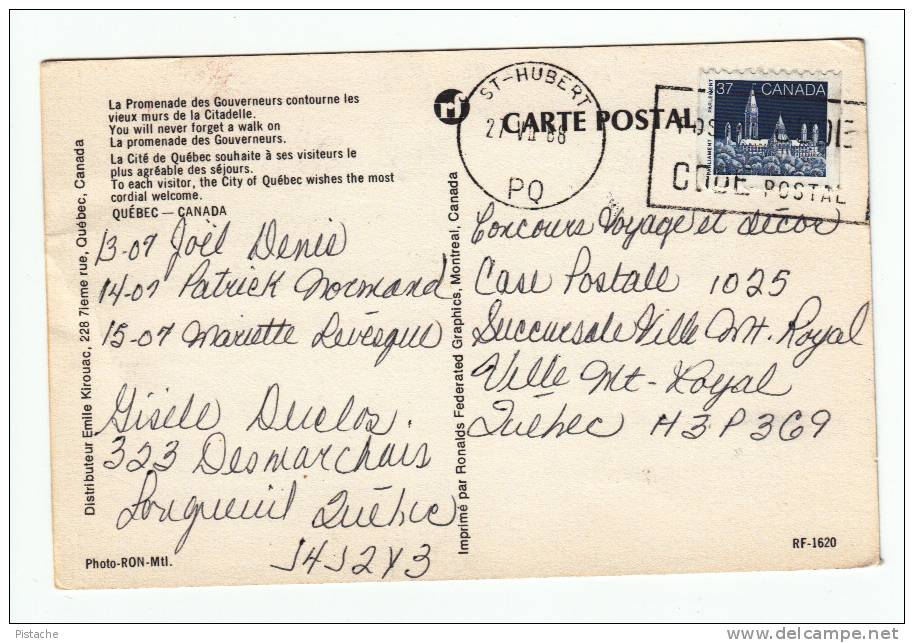 La Promenade des Gouverneurs contourne les
vieux murs de la Citadelle.
You will never forget a walk on
La promenade des Gouverneurs.
La Cité de Québec souhaite à ses visiteurs le
plus agréable des séjours.
To each visitor, the City of Québec wishes the most
cordial welcome.
QUÉBEC — CANADA
13-07 Joël Denis
14-07 Patrick Normand
15-07 Mariette Lévesque
Gisèle Duclos.
323 Desmarchais
Longueuil Québec
J4J2Y3
Photo-RON-Mtl.
Distributeur Emile Kirouac, 228 7ieme rue, Québec, Canada
Imprimé par Ronalds Federated Graphics, Montreal, Canada
rf
CARTE POSTAL
ST-HUBERT
PQ
37 CANADA
PARLIAMENT PARLEMENT
CODE POSTAL
Concours Voyage et décor
Case Postale 1025
Succursale Ville Mt. Royal
Ville Mt-Royal
Québec H3P3G9
RF-1620
Pistache
delcampe.net